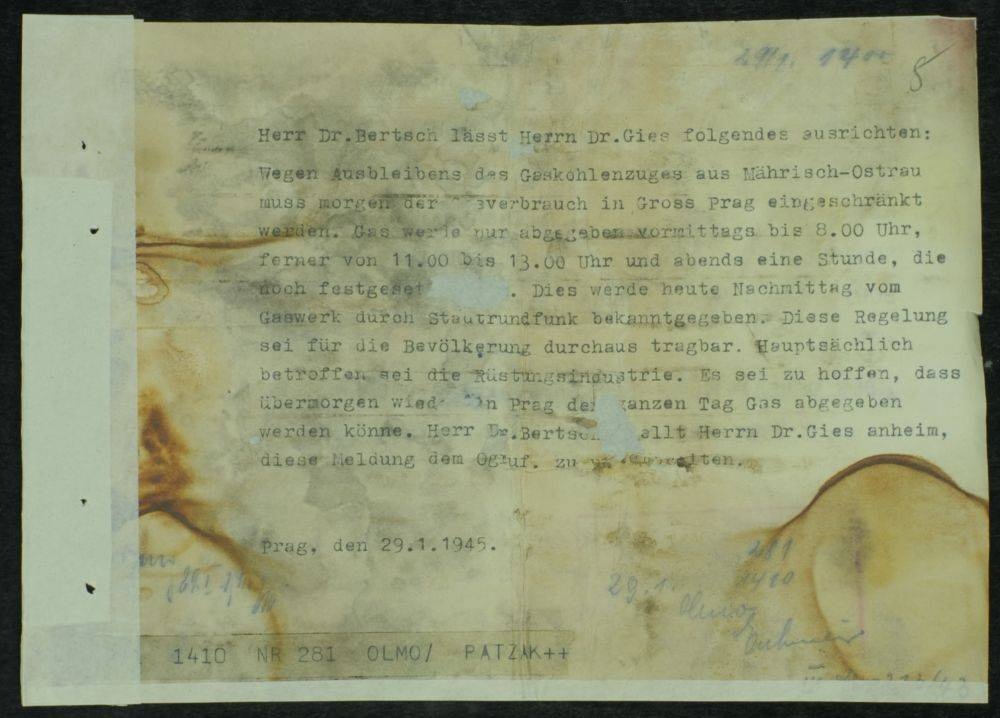 29/1. 1400
5
Herr Dr.Bertsch lässt Herrn Dr.Gies folgendes ausrichten:
Wegen Ausbleibens des Gaskohlenzuges aus Mährisch-Ostrau
muss morgen der verbrauch in Gross Prag eingeschränkt
werden. Gas werde nur abgegeben vormittags bis 8.00 Uhr,
ferner von 11.00 bis 13.00 Uhr und abends eine Stunde, die
noch festgeset . Dies werde heute Nachmittag vom
Gaswerk durch Stadtrundfunk bekanntgegeben. Diese Regelung
sei für die Bevölkerung durchaus tragbar. Hauptsächlich
betroffen sei die Rüstungsindustrie. Es sei zu hoffen, dass
übermorgen in Prag den ganzen Tag Gas abgegeben
werden könne. Herr Dr.Bertsch Herrn Dr.Gies anheim,
diese Meldung dem Ogruf. zu
Prag, den 29.1.1945.
281
29.1. 1410
Olmo
1410 NR 281 OLMO/ PATZAK++